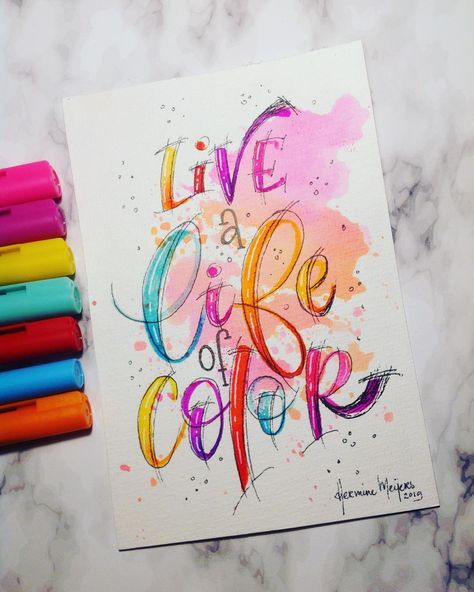 LiVE
a
life
of
color
Hermine Meijers
2019